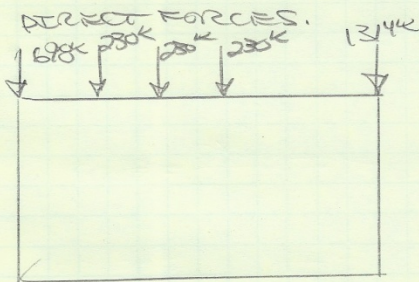 DIRECT FORCES.
698K 230K 230K 230K 1314K